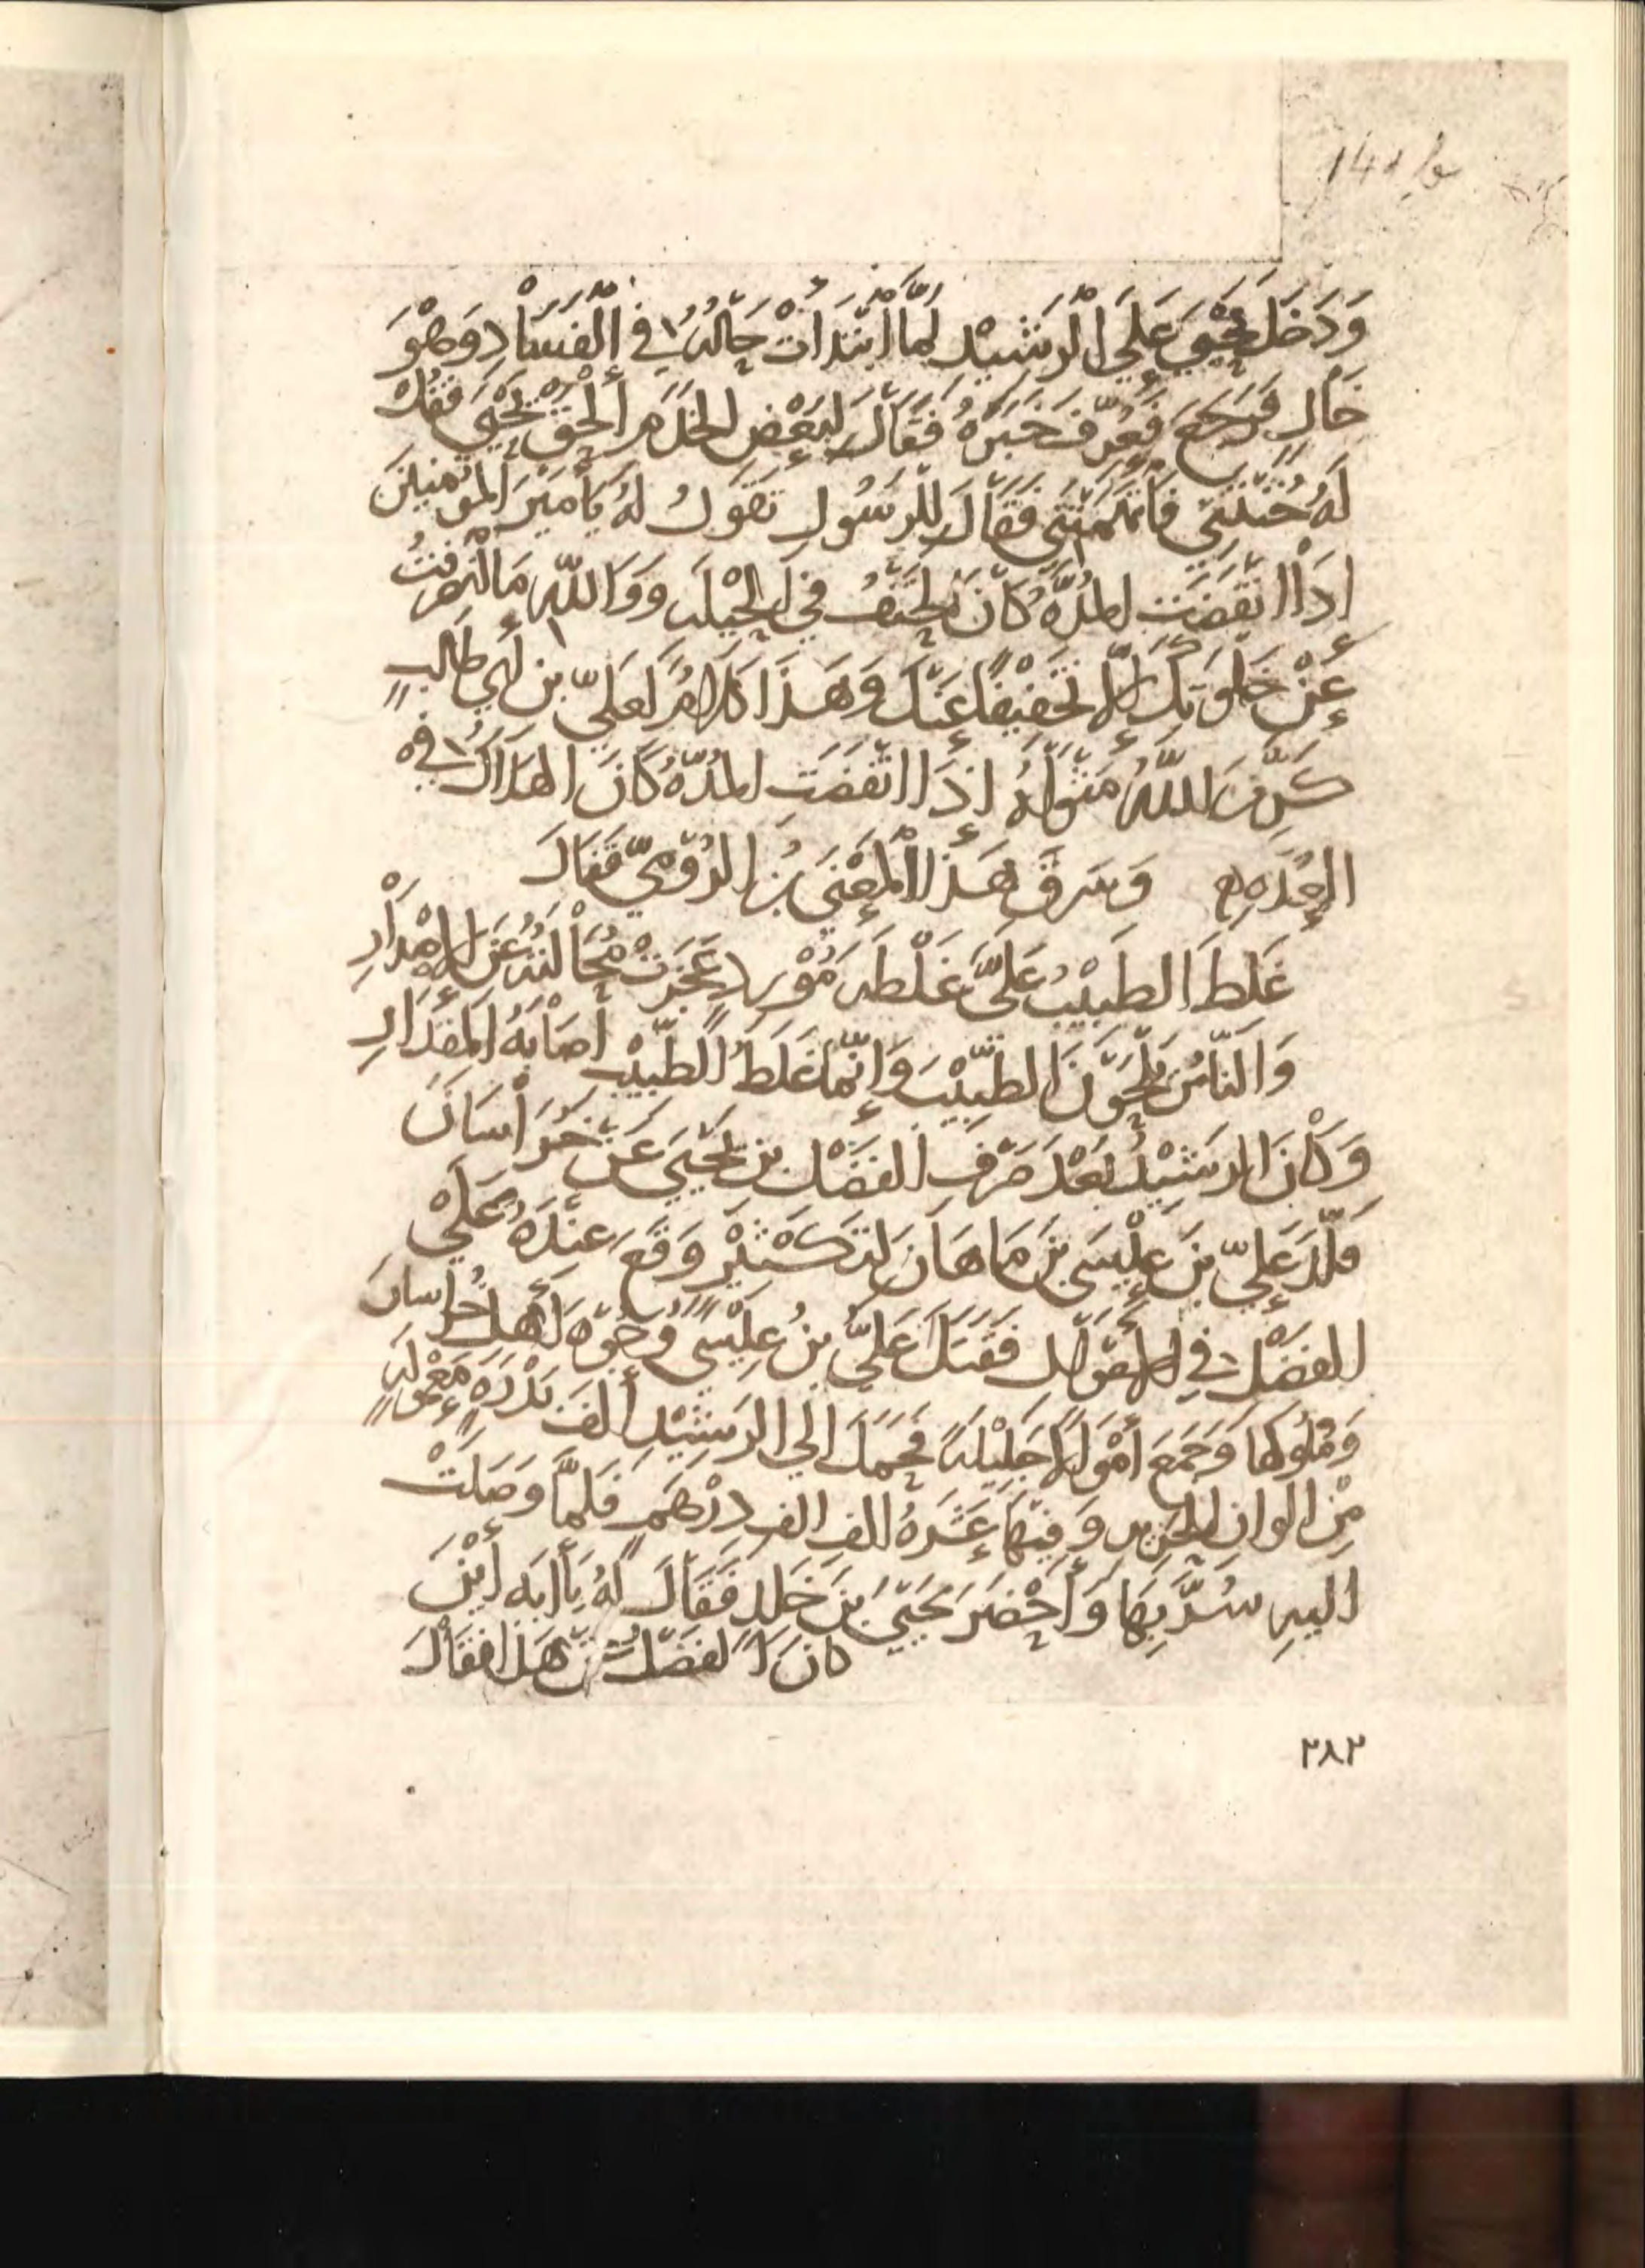 وَدَخَلَ يَحْيَى عَلَى الرَشِيْدِ لَمَّا ابْتَدَأَتْ حَالُهُ فِي الْفَسَادِ وَهْوَ
خَالٍ فَرَجَعَ فَعُرِّفَ خَبَرَهُ فَقَالَ لِبَعْضِ الخَدَمِ الْحَقْ يَحْيَى فَقُلْ
لَهُ خُنْتَنِي فَاتَّهَمْتَنِي فَقَالَ لِلرَسُولِ تَقُولُ لَهُ يَا أَمِيْرَ المُؤْمِنِيْنَ
إِذَا انْقَضَتِ المُدَّةُ كَانَ الحَتْفُ فِي الحِيْلَةِ وَوَاللهِ مَا انْصَرَفْتُ
عَنْ خَلْوَتِكَ إِلَّا تَخْفِيْفًا عَنْكَ وَهَذَا كَلَامٌ لِعَلِيِّ بنِ أَبِي طَالِبٍ
كَرَّمَ اللَّهُ مَثْوَاهُ إِذَا انْقَضَتِ المُدَّةُ كَانَ الهَلَاكُ فِي
العُدَّةِ وَسَرَقَ هَذَا الْمَعْنَى بنُ الرُوْمِيِّ فَقَالَ
غَلِطَ الطَبِيْبُ عَلَيَّ غَلْطَةَ مُوْرِدٍ عَجَزَتْ مَحَالَتُهُ عَنِ الإِصْدَارِ
وَالنَاسُ يَلْحَوْنَ الطَبِيْبَ وَإِنَّمَا غَلَطُ الطَبِيْبِ إصَابَةُ المِقْدَارِ
وَكَانَ الرَشِيْدُ بَعْدَ صَرْفِ الفَضْلِ بنِ يَحْيَى عَنْ خُرَاسَانَ
قَلَّدَ عَلِيَّ بنَ عِيْسَى بنِ مَاهَانَ لتكثير وَقَعَ عِنْدَهُ عَلَى
الفَضْلِ فِي الأموال فَقَتَلَ عَلِيُّ بنُ عِيْسَى وُجُوْهَ أَهْلِ خُرَاسَانَ
وَمُلُوكَهَا وَجَمَعَ أَمْوَالًا جَلِيْلَةً فَحَمَلَ إِلَى الرَشِيْدِ أَلْفَ بَدْرَةٍ مَعْمُولَةٍ
مِنْ الوانِ الحَرِيرِ وَفِيهَا عَشَرَةُ الفِ الفِ دِرْهَمٍ فَلَمَّا وَصَلَتْ
الَيهِ سُرَّ بِهَا وَأَحْضَرَ يَحْيَى بنَ خَلدٍ فَقَالَ لَهُ يَا أَبَه أَيْنَ
كانَ الفَضْلُ عَنْ هَذَا فَقَالَ
٣٨٣